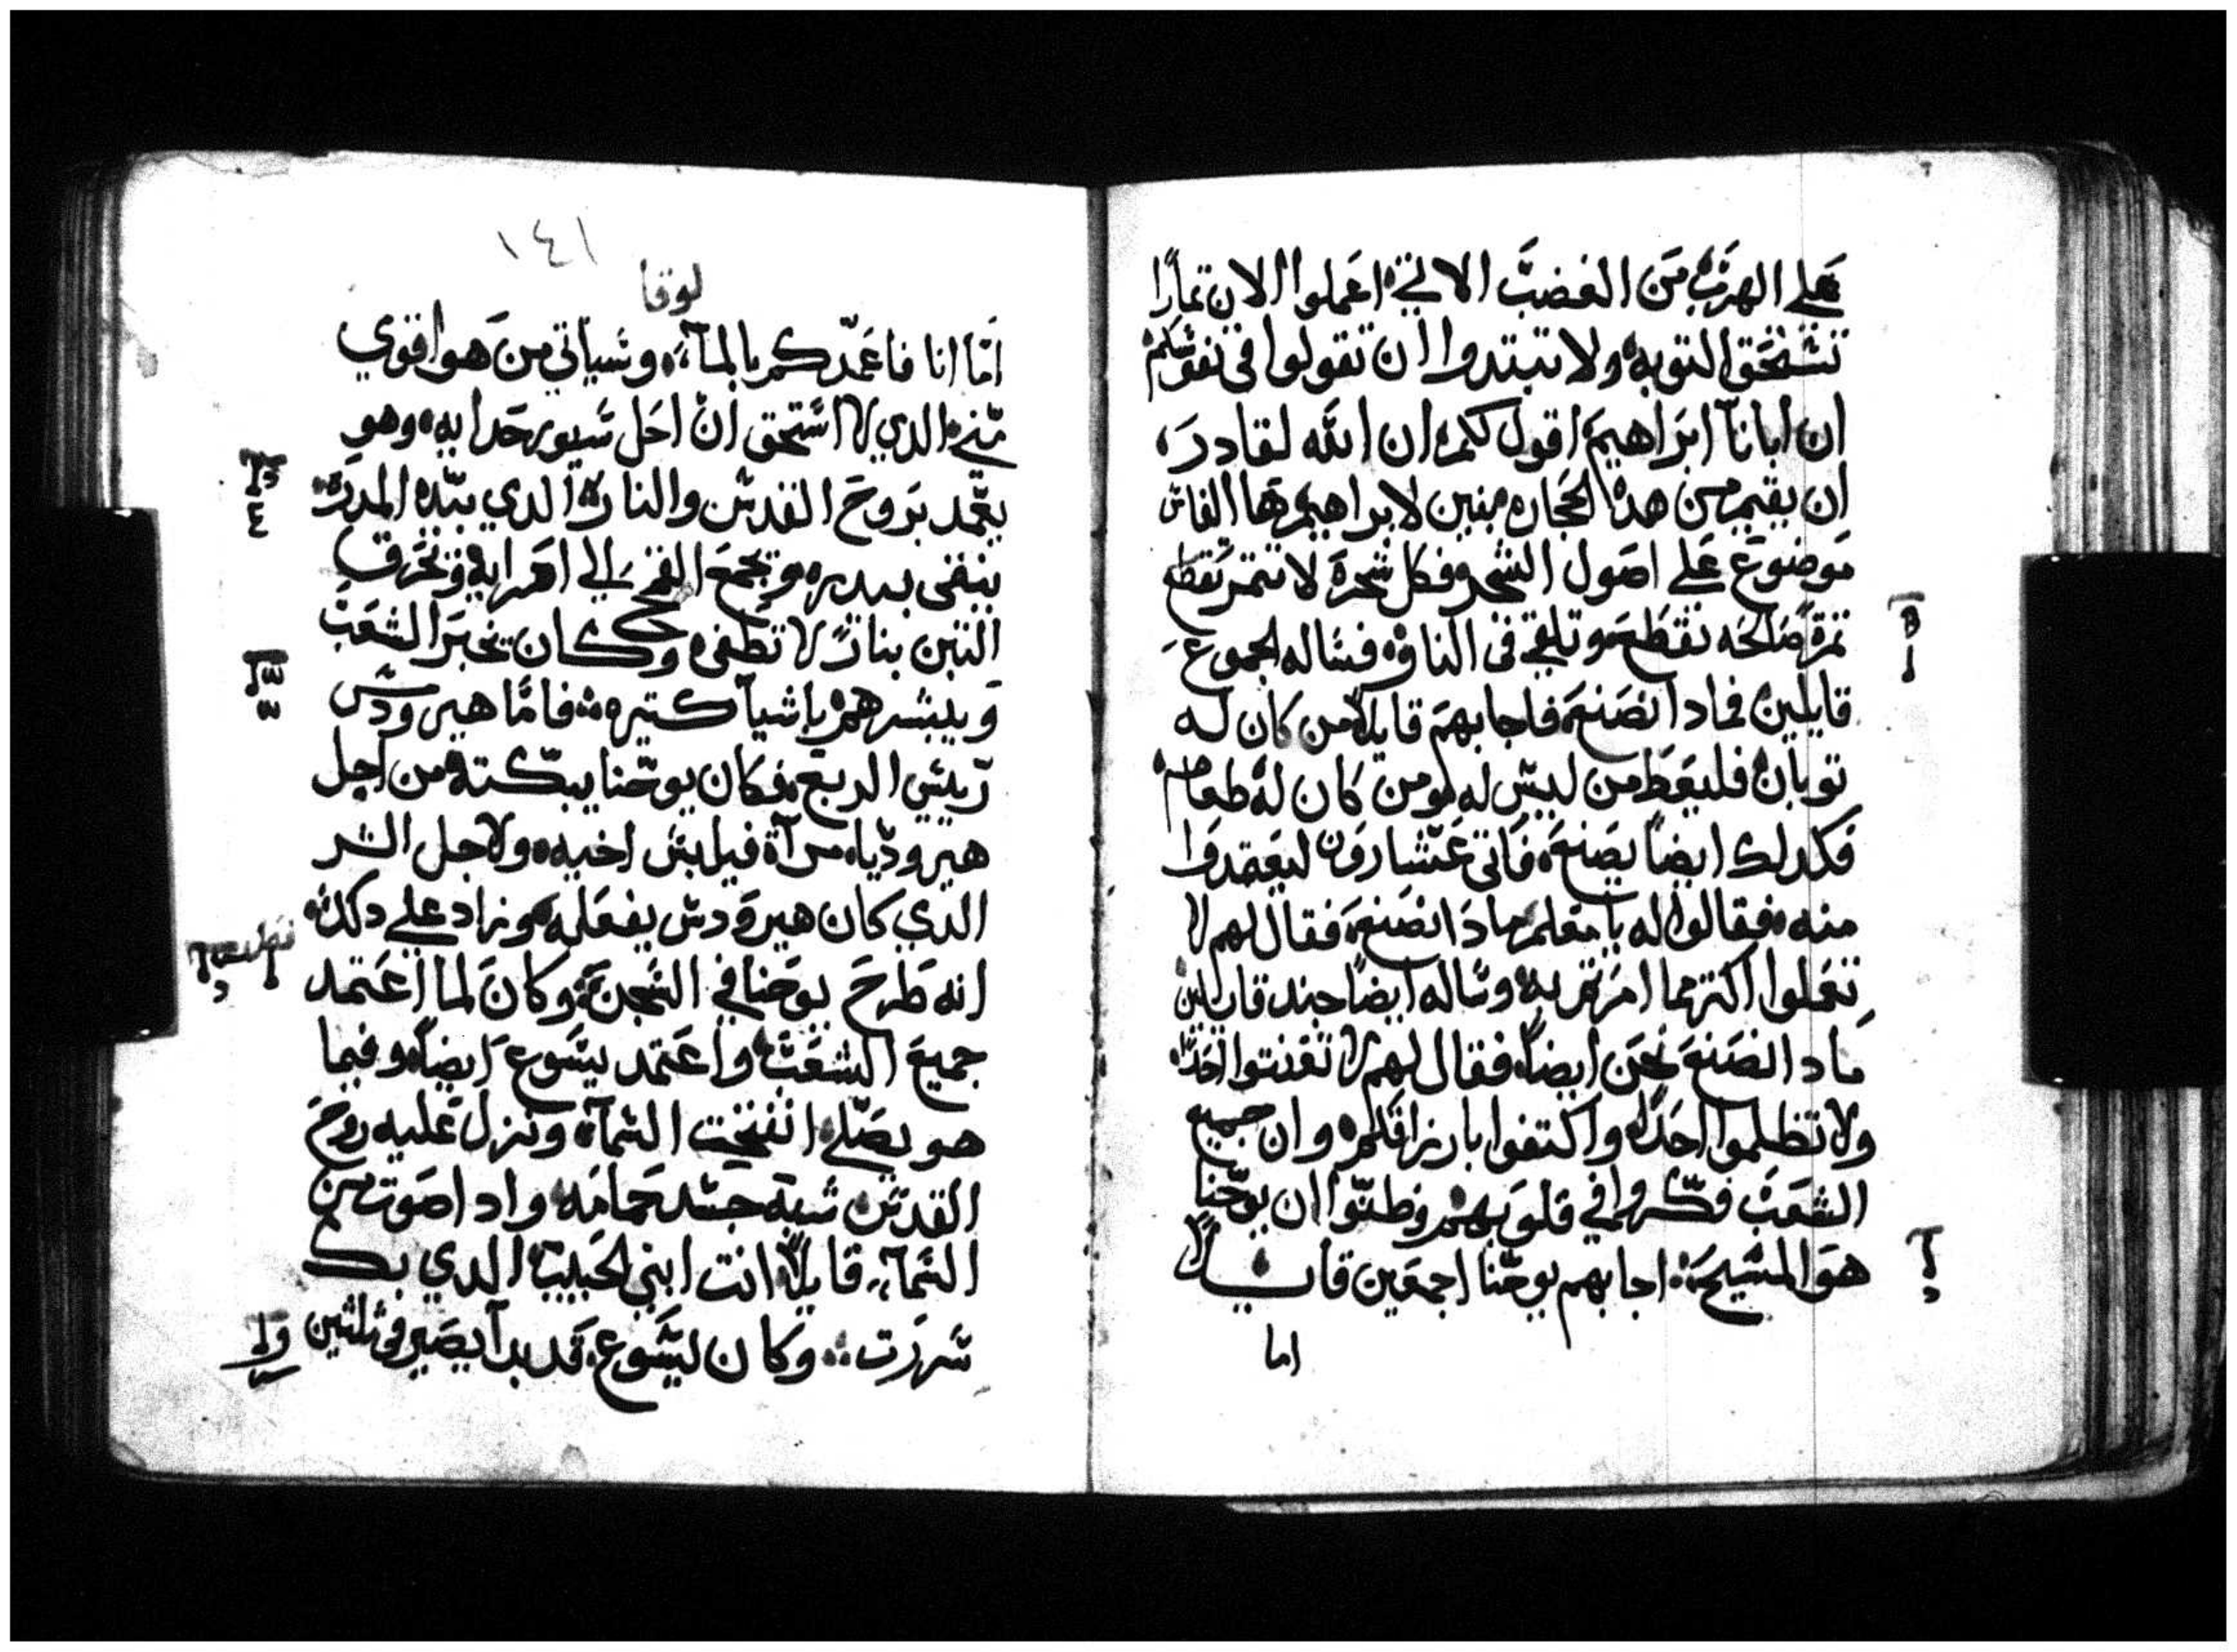 علي الهرب من الغضب الاتي اعملوا الان تمارا
تستحق التوبه ولا تبتدوا ان تقولوا في نفوسكم
ان ابانا ابراهيم اقول لكم ان الله لقادر
ان يقيم من هده الحجاره بنين لابراهيم ها الفاس
موضوع علي اصول الشجر فكل شجرة لا تتمر تقطع
تمرة صالحه تقطع وتلقي في النار فساله الجموع
قايلين فمادا نصنع فاجابهم قايلا من كان له
توبان فليعط من ليس له ومن كان له طعام
فكدلك ايضا يصنع فاتي عشارون ليعتمدوا
منه فقالوا له يا معلم مادا نصنع فقال لهم لا
تعملوا اكتر مما امرتم به وساله ايضا جند قايلين
مادا نصنع نحن ايضا فقال لهم لا تعنتوا احدا
ولا تظلموا احدا واكتفوا بارزاقكم وان جميع
الشعب فكروا في قلوبهم وظنوا ان يوحنا
هو المسيح اجابهم يوحنا اجمعين قايلا
اما
١٤١
لوقا
اما انا فاعمدكم بالمآء وسياتي من هو اقوي
مني الدي لا استحق ان احل سيور حدايه وهو
يعمد بروح القدس والنار الدي بيده المدره
ينقي بيدره ويجمع القمح الي اهرايه ويحرق
التبن بنار لا تطفي وكان يخبر الشعب
ويبشرهم باشيآ كتيره فاما هيرودس
رييس الربع فكان يوحنا يبكته من اجل
هيروديا مرآة فيلبس اخيه ولاجل الشر
الدي كان هيرودس يفعله وزاد علي دلك
انه طرح يوحنا في السجن وكان لما اعتمد
جميع الشعب واعتمد يسوع ايضا وفيما
هو يصلي انفتحت السمآء ونزل عليه روح
القدس شبه جسد حمامه واد اصوت من
السمآء قايلا انت ابني الحبيب الدي بك
سررت وكان ليسوع قد بدآ يصير في ثلثين